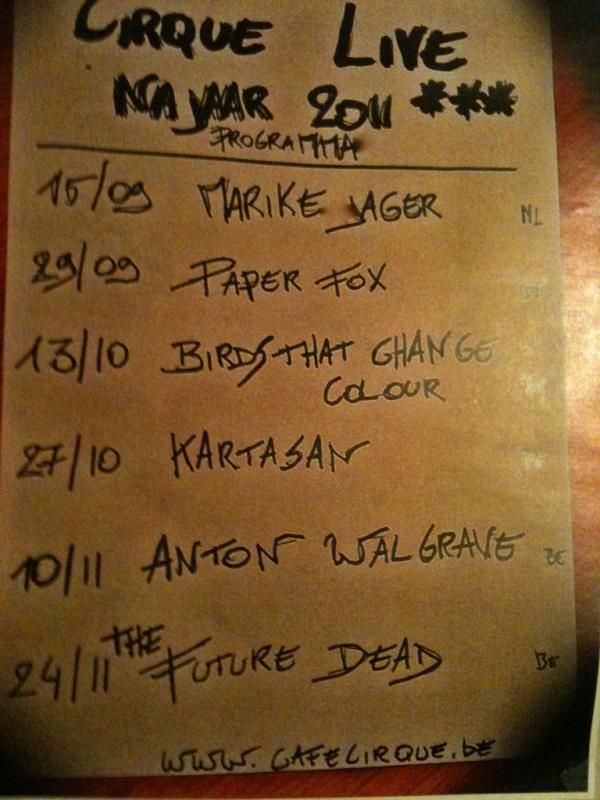 CIRQUE LIVE
NAJAAR 2011 ***
PROGRAMMA
15/09 MARIKE JAGER NL
29/09 PAPER FOX
13/10 BIRDS THAT CHANGE
COLOUR
27/10 KARTASAN
10/11 ANTON WALGRAVE BE
24/11 THE FUTURE DEAD BE
WWW.CAFECIRQUE.be